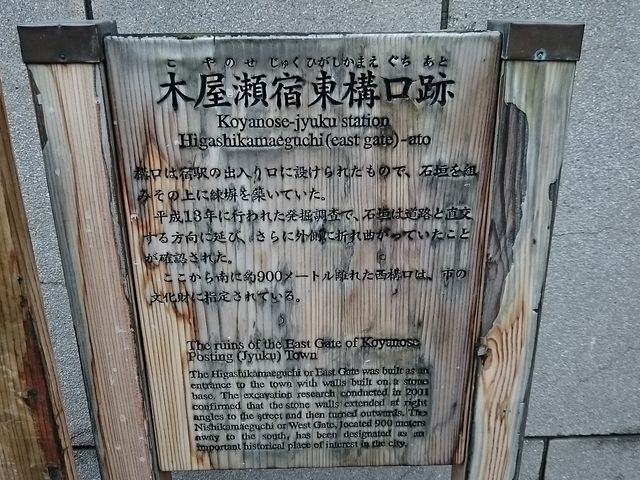 こ やのせ じゅく ひがしかまえ ぐち あと
木屋瀬宿東構口跡
Koyanose-jyuku station
Higashikamaeguchi(east gate)-ato
構口は宿駅の出入り口に設けられたもので、石垣を組
みその上に練塀を築いていた。
平成13年に行われた発掘調査で、石垣は道路と直交
する方向に延び、さらに外側に折れ曲がっていたこと
が確認された。
ここから南に約900メートル離れた西構口は、市の
文化財に指定されている。
The ruins of the East Gate of Koyanose
Posting (Jyuku) Town
The Higashikamaeguchi or East Gate was built as an
entrance to the town with walls built on a stone
base. The excavation research conducted in 2001
confirmed that the stone walls extended at right
angles to the street and then turned outwards. The
Nishikamaeguchi or West Gate, located 900 meters
away to the south, has been designated as an
important historical place of interest in the city.